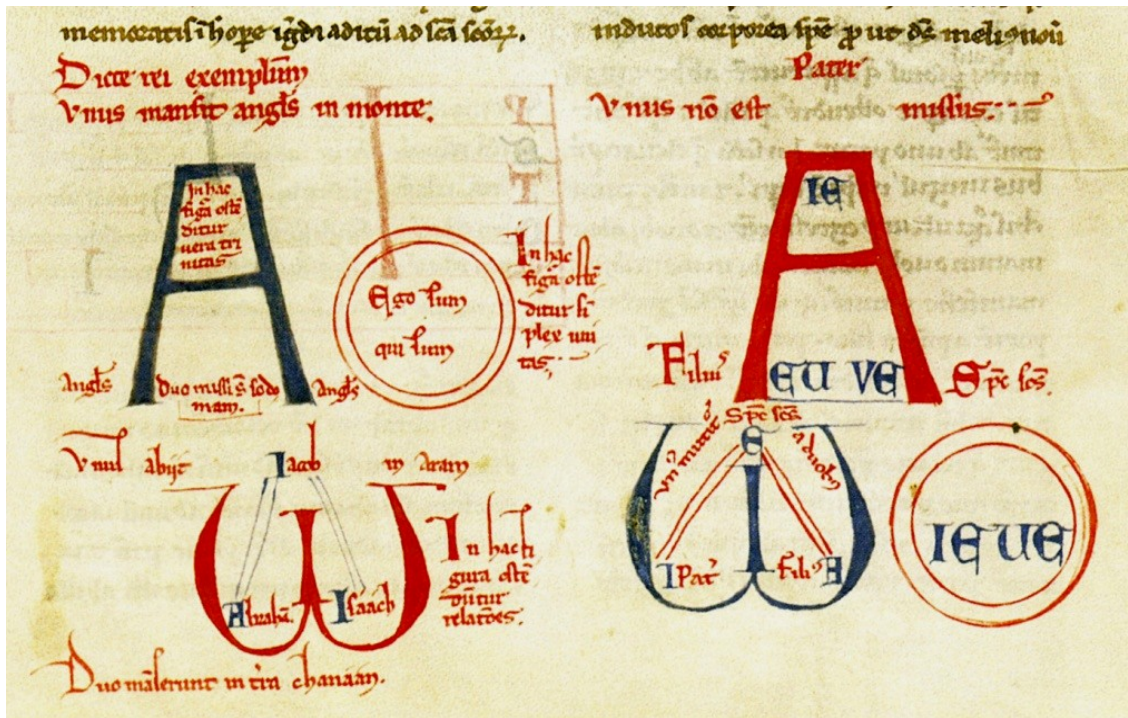 memoratis
Dicte rei exemplum
Vnus mansit angls in monte.
In hac
figa oste
ditur
vera tri
nitas
Ego sum
qui sum
In hac
figa oste
ditur si
plex uni
tas
Angls Duo missi s sodo Angls
mam.
Vnus abijt Iacob in Aram
Abraha Isaach
In hac fi
gura oste
duntur
relatoes.
Duo maserunt in tra chanaan.
inductos corporea spe
Pater
Vnus no est missus
IE
Filius EU VE Spc scs.
Spc scs
E
a duobus
I Pat Filius E
IEUE